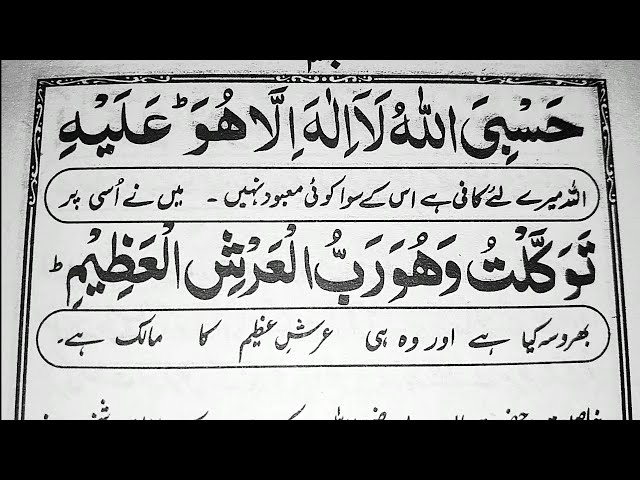 ۳۰
حَسْبِیَ اللّٰهُ لَاۤ اِلٰهَ اِلَّا هُوَ ؕ عَلَیْهِ
اللہ میرے لئے کافی ہے اس کے سوا کوئی معبود نہیں ۔ میں نے اُسی پر
تَوَکَّلْتُ وَهُوَ رَبُّ الْعَرْشِ الْعَظِیْمِ ؕ
بھروسہ کیا ہے اور وہ ہی عرشِ عظیم کا مالک ہے۔